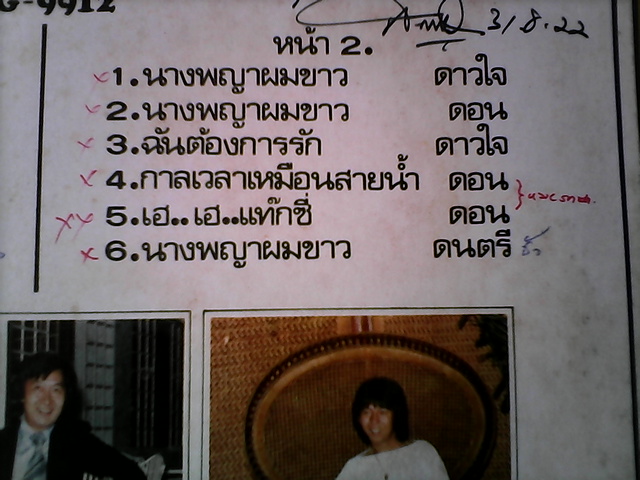 G-9912
3/8.22
หน้า 2.
1.นางพญาผมขาว ดาวใจ
2.นางพญาผมขาว ดอน
3.ฉันต้องการรัก ดาวใจ
4.กาลเวลาเหมือนสายน้ำ ดอน
5.เฮ..เฮ..แท๊กซี่ ดอน
6.นางพญาผมขาว ดนตรี